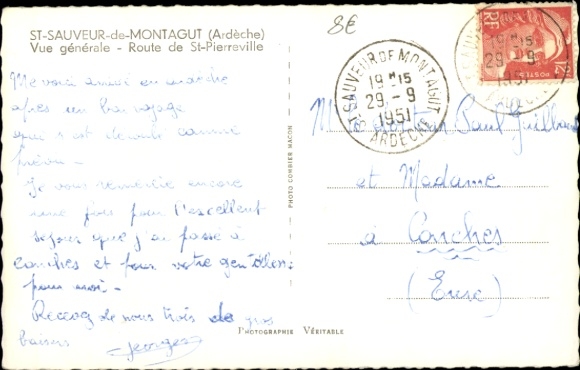 ST-SAUVEUR-de-MONTAGUT (Ardèche)
Vue générale - Route de St-Pierreville
Me voici arrivé en ardèche
après un bon voyage
qui s'est déroulé comme
prévu -
Je vous remercie encore
une fois pour l'excellent
séjour que j'ai passé à
conches et pour votre
pour moi -
de nous trois de gros
baisers Georges
PHOTO COMBIER MACON
PHOTOGRAPHIE VÉRITABLE
8€
ST. SAUVEUR DE MONTAGUT
19 H 15
29 - 9
1951
ARDECHE
RF
12F
POSTES
19 H 15
29 - 9
1951
Paul
et Madame
à Conches
(Eure)